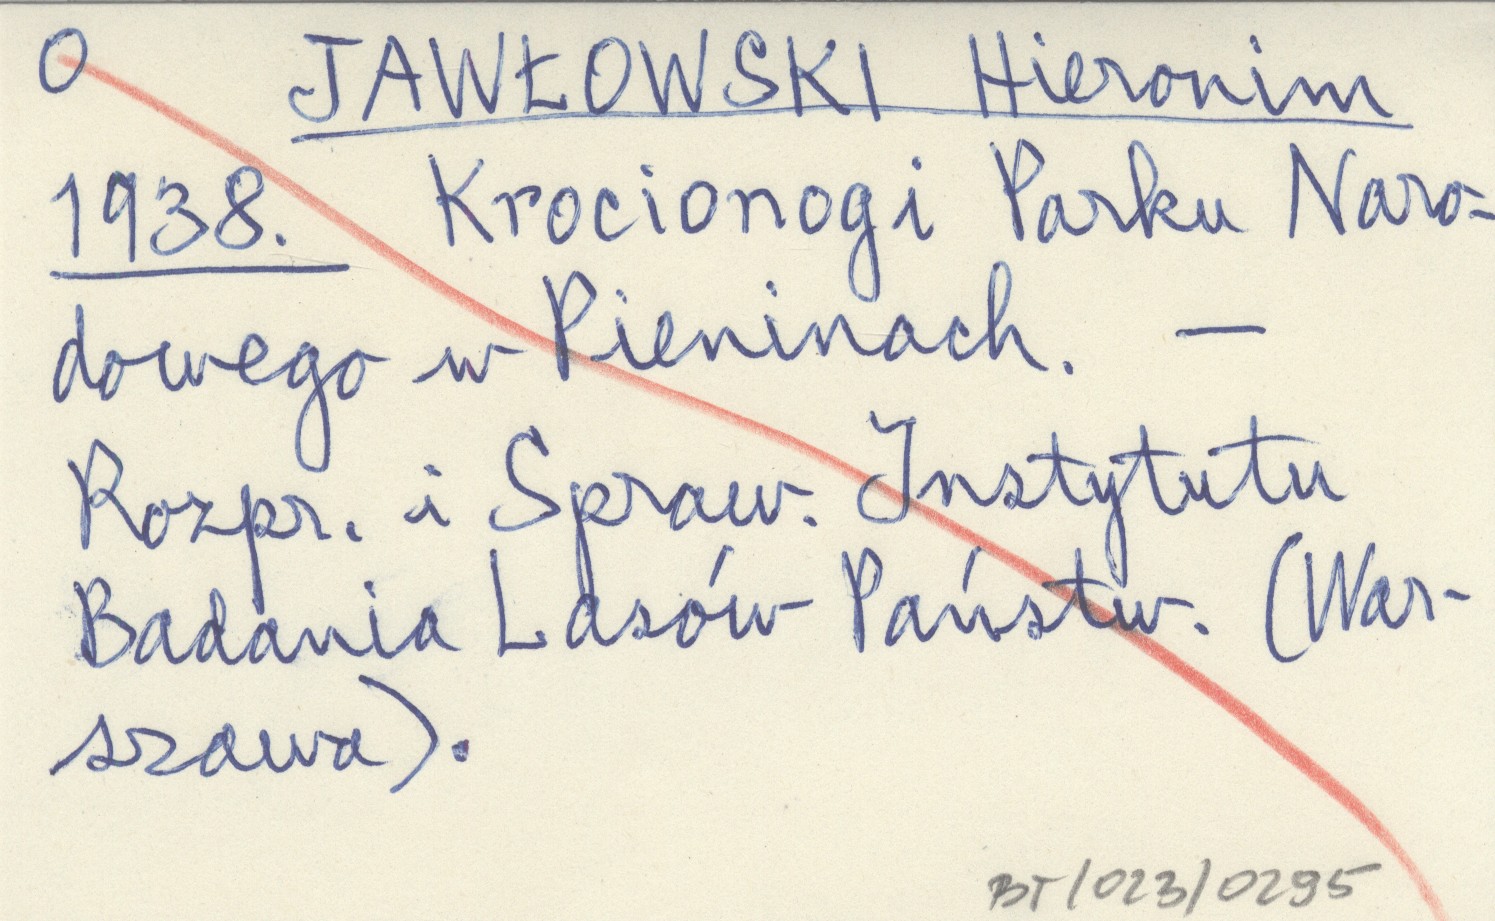 O JAWŁOWSKI Hieronim
1938. Krocionogi Parku Naro-
dowego w Pieninach. —
Rozpr. i Spraw. Instytutu
Badania Lasów Państw. (War-
szawa).
BT/023/0295